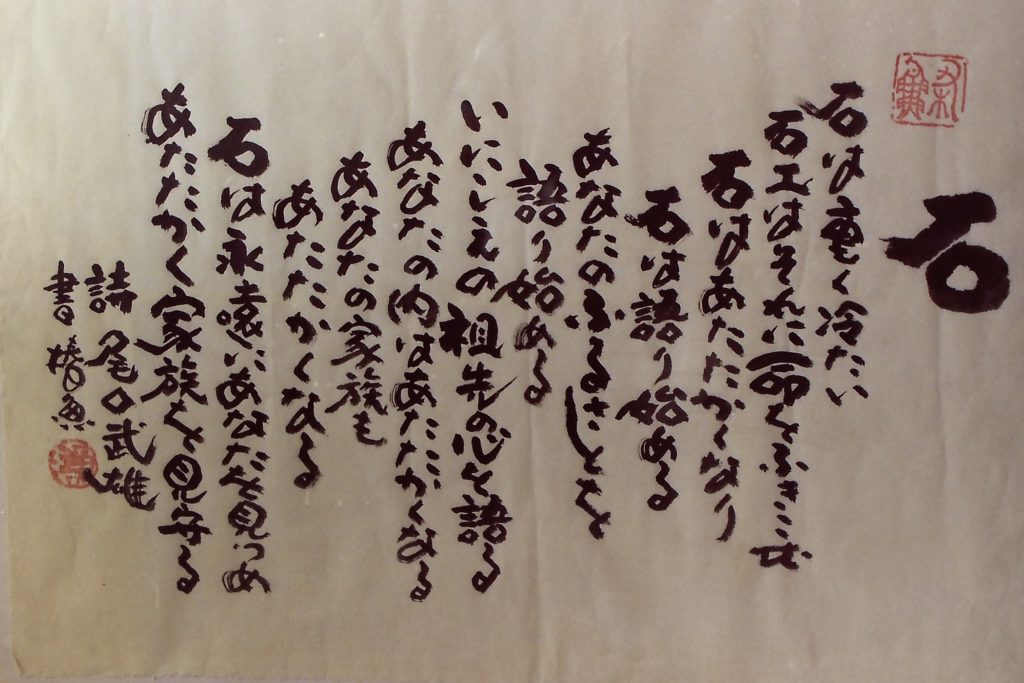 石
石は重く冷たい
石工はそれに命をふきこむ
石はあたたかくなり
石は語り始める
あなたのふるさとを
語り始める
いにしえの祖先の心を語る
あなたの内はあたたかくなる
あなたの家族も
あたたかくなる
石は永遠にあなたを見つめ
あたたかく家族を見守る
詩 尾口武雄
書